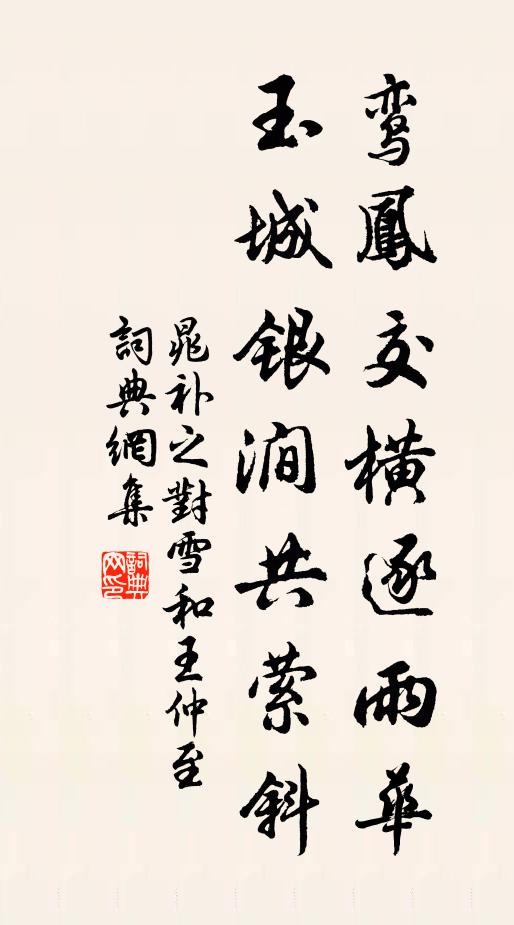 鸾鳳交橫逐兩華
玉城銀澗共縈斜
晁补之對雪和王仲至
詞典網集
詞典网印